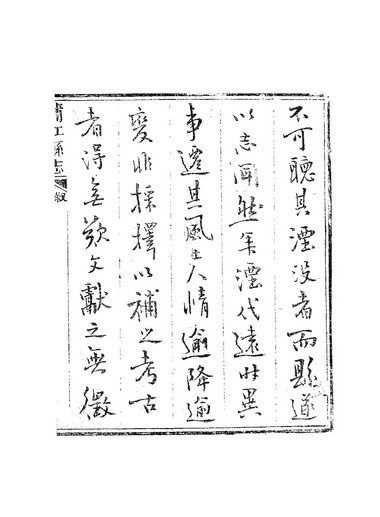 不可聽其湮没者而縣遂
以志聞然年湮代遠時異
事遷其風土人情逾降逾
變非採擇以補之考古
者得無歎文獻之無徵
清江縣志 叙